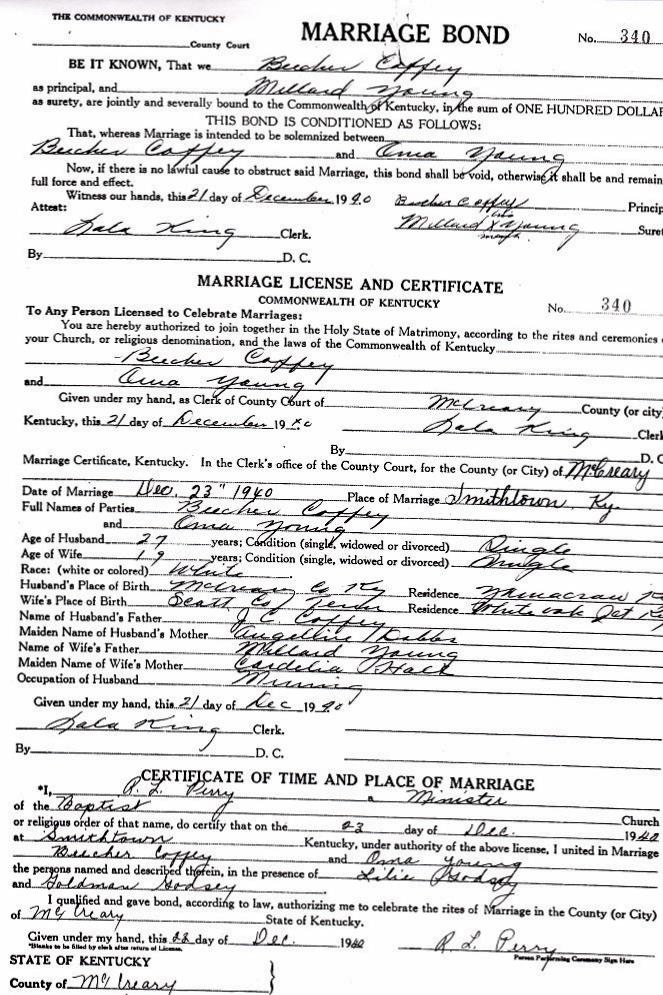 THE COMMONWEALTH OF KENTUCKY
MARRIAGE BOND
County Court
No. 340
BE IT KNOWN, That we Beecher Coffey
as principal, and Millard Young
as surety, are jointly and severally bound to the Commonwealth of Kentucky, in the sum of ONE HUNDRED DOLLAR
THIS BOND IS CONDITIONED AS FOLLOWS:
That, whereas Marriage is intended to be solemnized between
Beecher Coffey and Oma Young
Now, if there is no lawful cause to obstruct said Marriage, this bond shall be void, otherwise it shall be and remain
full force and effect.
Witness our hands, this 21 day of December 1940 Beecher Coffey Princip
Attest: his
Millard X Young Suret
mark
Lala King Clerk.
By D. C.
MARRIAGE LICENSE AND CERTIFICATE
COMMONWEALTH OF KENTUCKY
No. 340
To Any Person Licensed to Celebrate Marriages:
You are hereby authorized to join together in the Holy State of Matrimony, according to the rites and ceremonies
your Church, or religious denomination, and the laws of the Commonwealth of Kentucky
Beecher Coffey
and Oma Young
Given under my hand, as Clerk of County Court of McCreary County (or city)
Kentucky, this 21 day of December 1940 Lala King Clerk
By D. C
Marriage Certificate, Kentucky. In the Clerk's office of the County Court, for the County (or City) of McCreary
Date of Marriage Dec. 23" 1940 Place of Marriage Smithtown, Ky.
Full Names of Parties Beecher Coffey
and Oma Young
Age of Husband 27 years; Condition (single, widowed or divorced) Single
Age of Wife 19 years; Condition (single, widowed or divorced) Single
Race: (white or colored) White
Husband's Place of Birth McCreary Co Ky Residence Yamacraw
Wife's Place of Birth Scott Co Tenn Residence White oak Jct Ky
Name of Husband's Father J C Coffey
Maiden Name of Husband's Mother Angelline Dobbs
Name of Wife's Father Millard Young
Maiden Name of Wife's Mother Cordelia Hall
Occupation of Husband Mining
Given under my hand, this 21 day of Dec 1940
Lala King Clerk.
By D. C.
CERTIFICATE OF TIME AND PLACE OF MARRIAGE
*I, R. L. Perry a Minister
of the Baptist Church
or religious order of that name, do certify that on the 23 day of Dec. 1940
at Smithtown Kentucky, under authority of the above license, I united in Marriage
Beecher Coffey and Oma Young
the persons named and described therein, in the presence of Lilie Godsey
and Goldman Godsey
I qualified and gave bond, according to law, authorizing me to celebrate the rites of Marriage in the County (or City)
of McCreary State of Kentucky.
Given under my hand, this 23 day of Dec. 1940 R. L. Perry
*Blanks to be filled by clerk after return of License. Person Performing Ceremony Sign Here
STATE OF KENTUCKY
County of McCreary